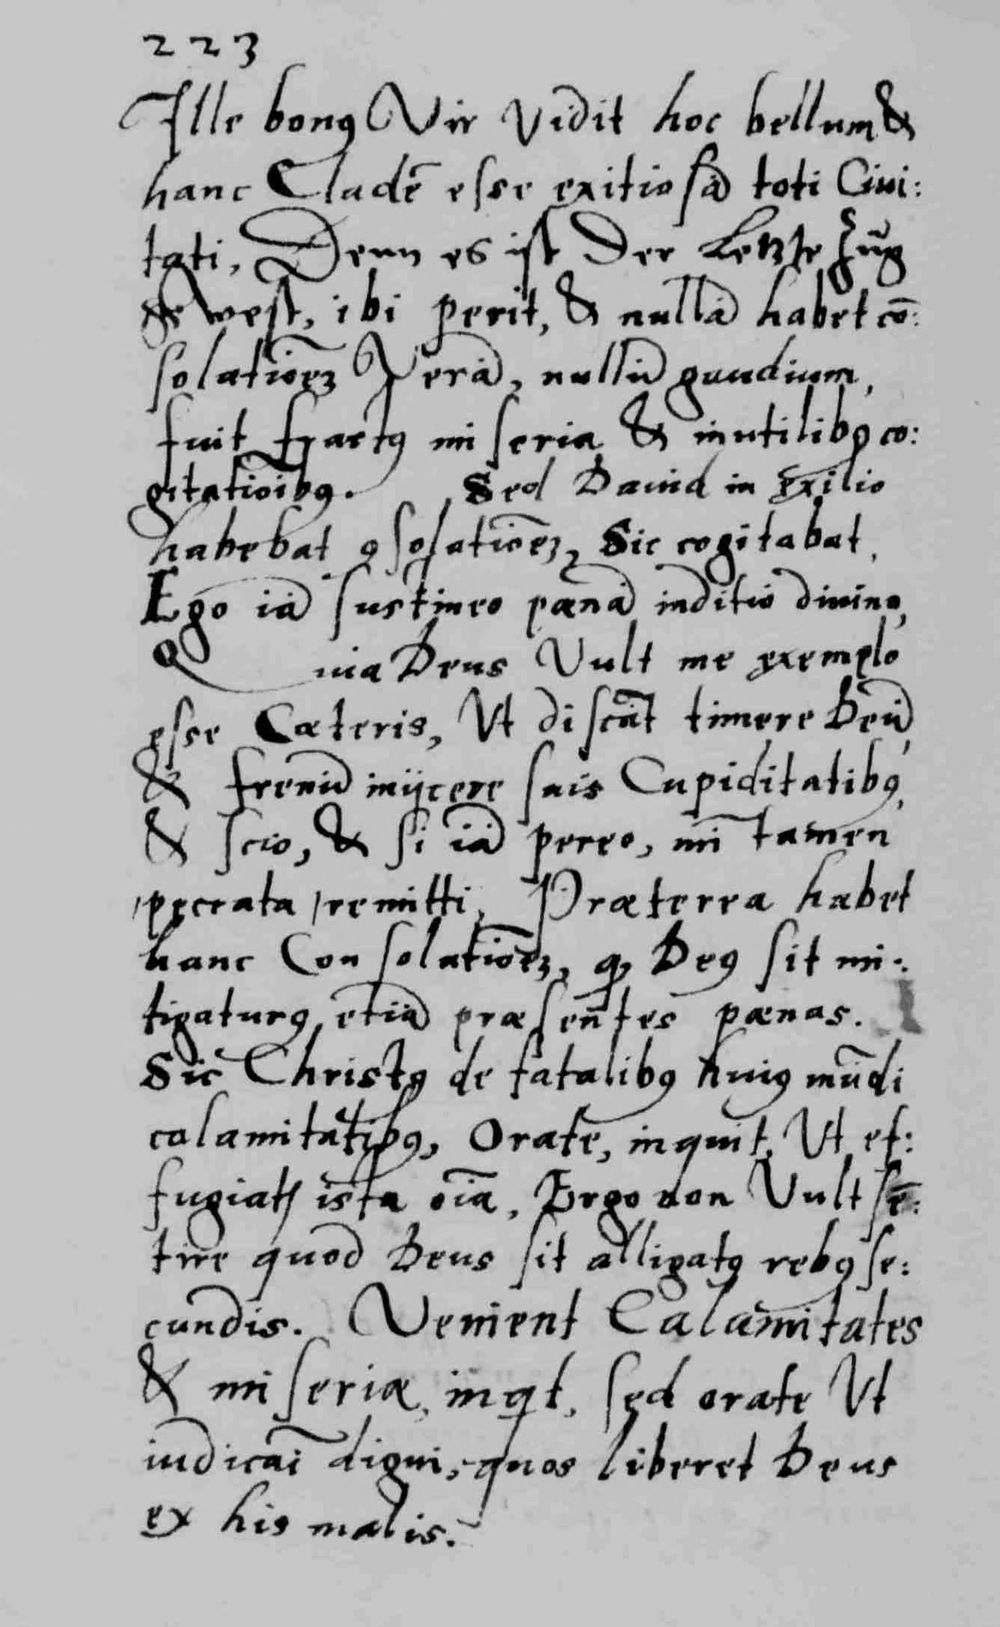 223
Ille bonꝰ Vir Vidit hoc bellum &
hanc Cladē esse exitiosā toti Ciui:
tati, Denn es ist Der Letzte Zug
gewest, ibi perit, & nullā habet cō:
solatioēꝫ Verā, nullū gaudium,
fuit fractꝰ miseria & inutilibꝰ co:
gitatioībꝰ. Sed Dauid in exilio
habebat ꝯsolatioēꝫ, Sic cogitabat,
Ego iā sustineo pœnā iuditio diuino,
Quia Deus Vult me exemplo
esse Cæteris, Vt discāt timere Deū,
& frenū iniicere suis Cupiditatibꝰ,
& scio, & si iā pereo, mī tamen
peccata remitti, Præterea habet
hanc Consolatioēꝫ, ꝙ Deꝰ sit mi:
tigaturꝰ etiā præsentes pœnas.
Sic Christꝰ de fatalibꝰ huiꝰ mūdi
calamitatibꝰ, Orate, inquit, Vt ef:
fugiatꝭ ista oīa, Ergo non Vult sē:
tire quod Deus sit alligatꝰ rebꝰ se:
cundis. Venient Calamitates
& miseriæ, inqt, sed orate Vt
iudicāī digni, quos liberet Deus
ex his malis.